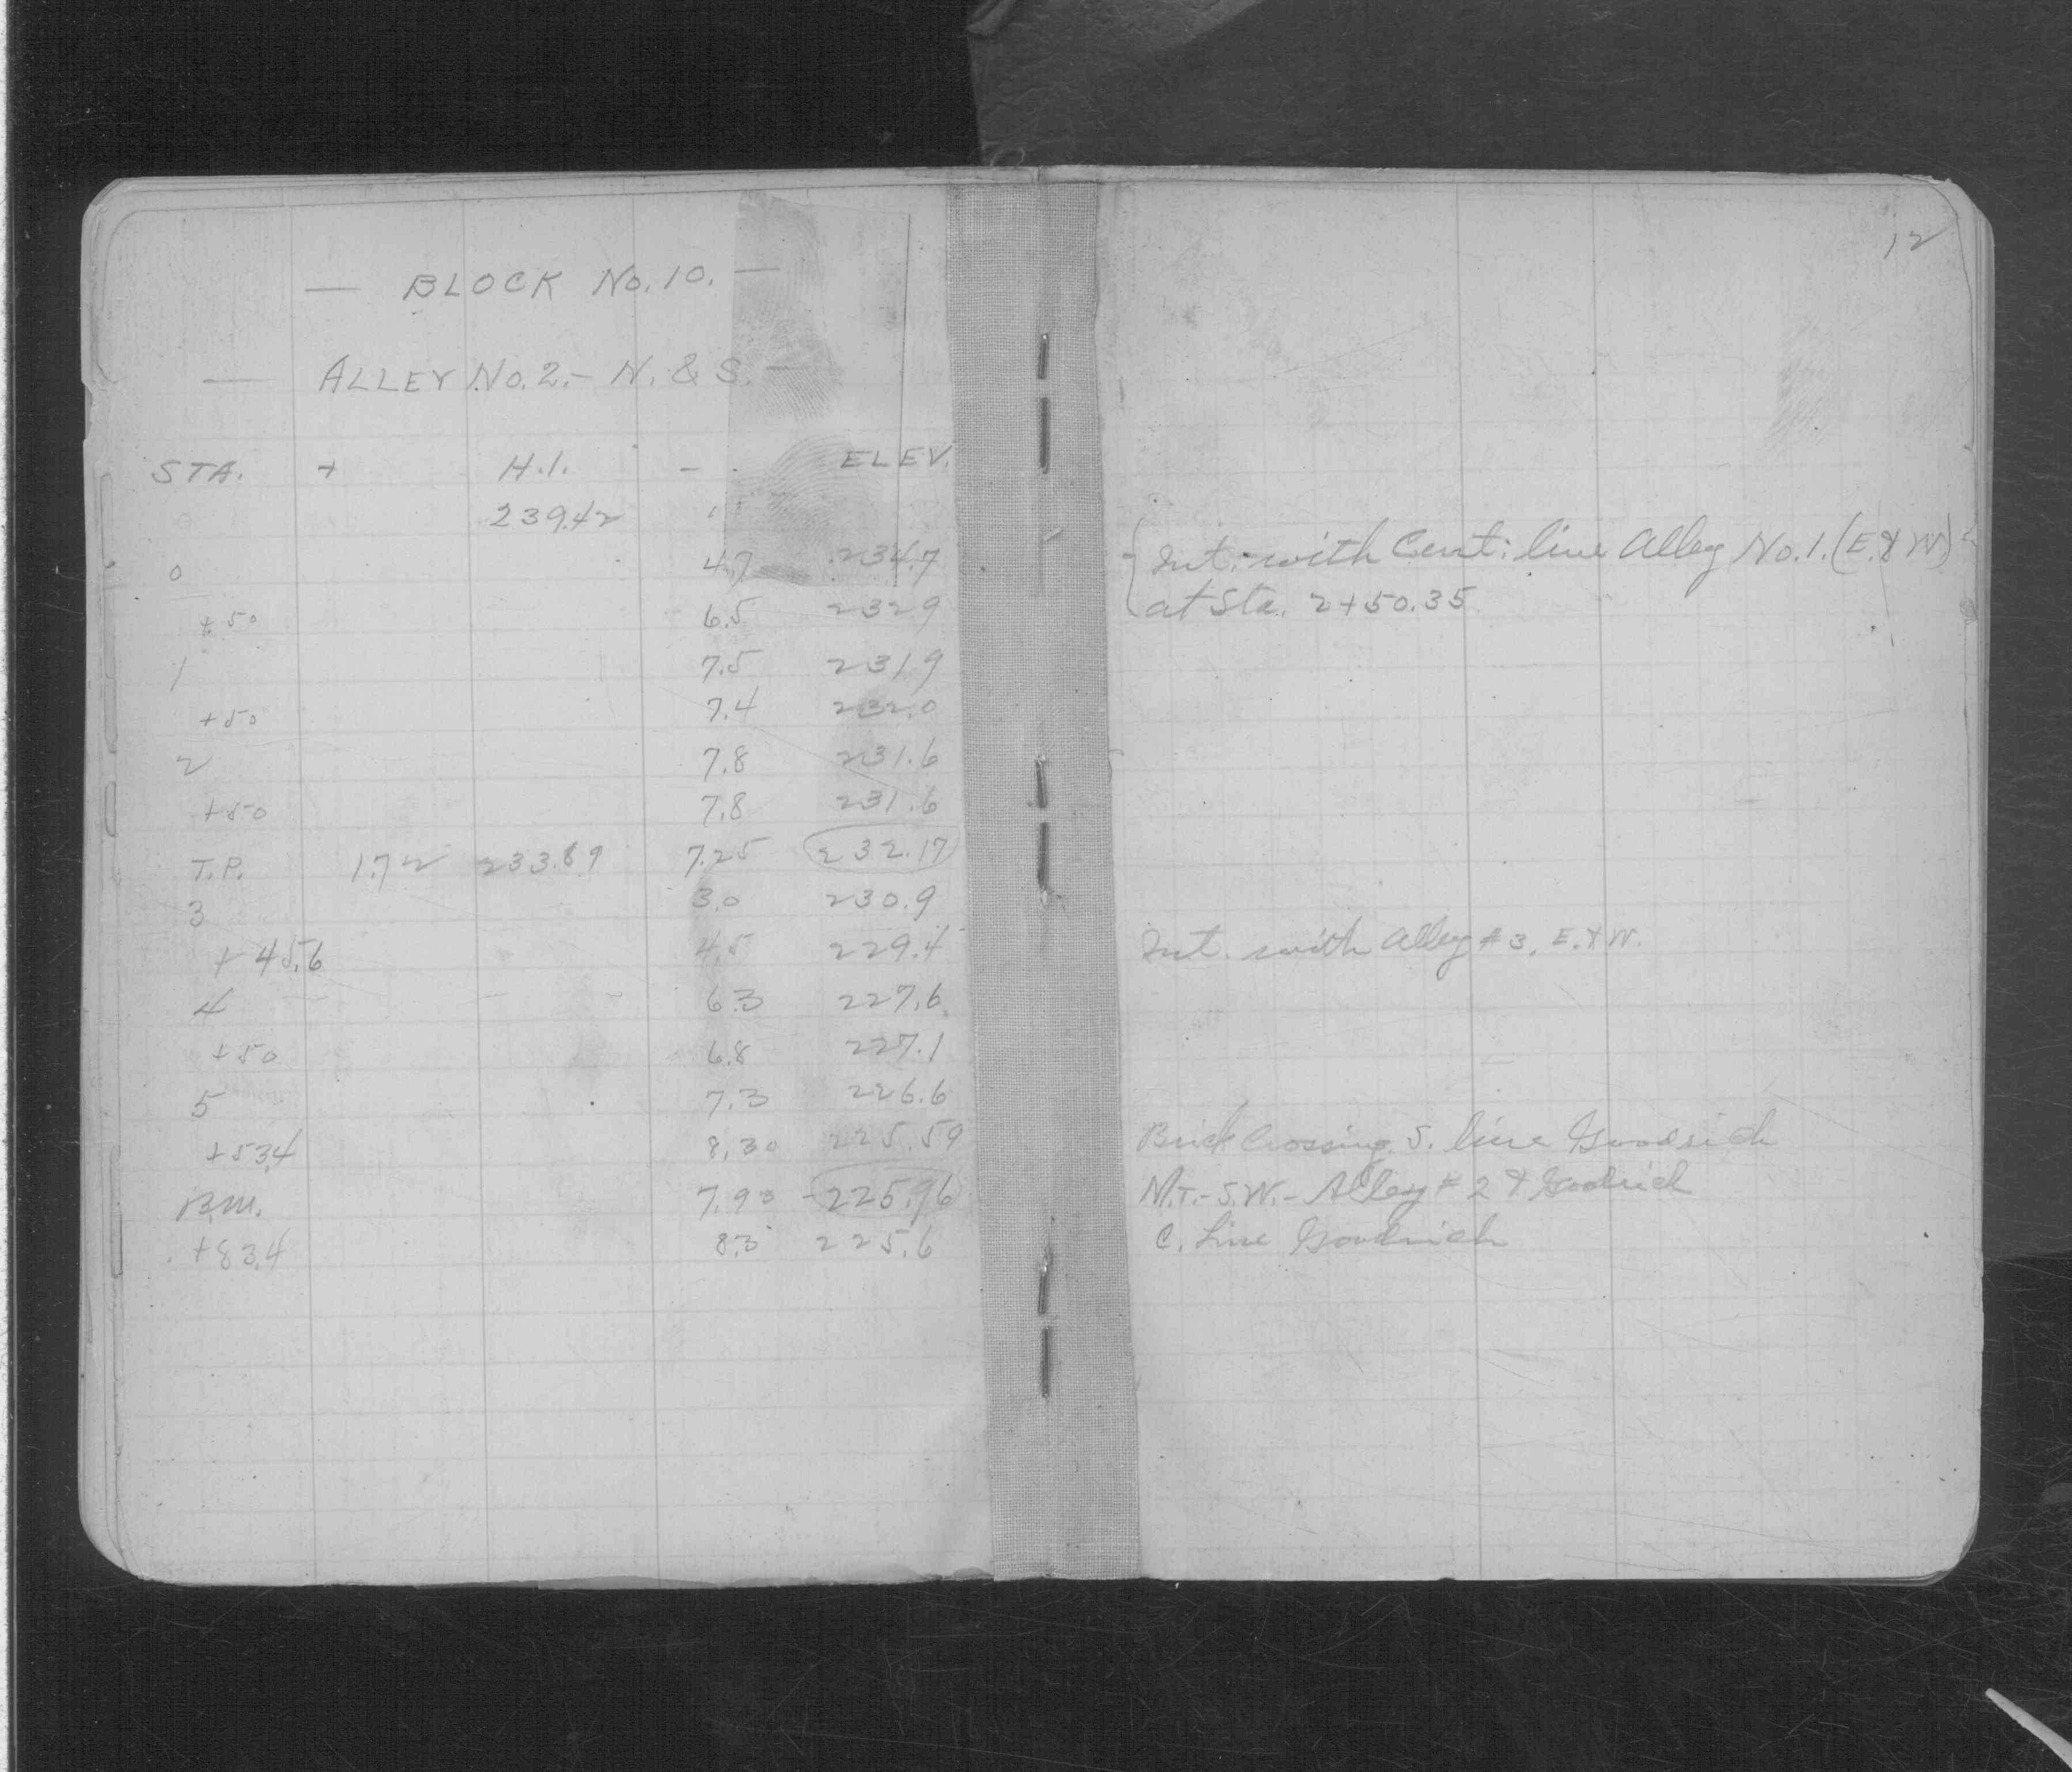 — BLOCK No. 10. —
— ALLEY No. 2. - N. & S. —
STA. + H.I. - ELEV.
239.42
0 4.7 234.7
+50 6.5 232.9
1 7.5 231.9
+50 7.4 232.0
2 7.8 231.6
+50 7.8 231.6
T.P. 1.72 233.89 7.25 232.17
3 3.0 230.9
+45.6 4.5 229.4
4 6.3 227.6
+50 6.8 227.1
5 7.3 226.6
+53.4 8.30 225.59
B.M. 7.93 225.96
+83.4 8.3 225.6
12
Int. with Cent: line Alley No. 1. (E. & W)
at Sta. 2+50.35
Int. with Alley #3, E. & W.
Brick Crossing S. line Goodrich
N.T.- S.W.- Alley #2 & Goodrich
C. Line Goodrich